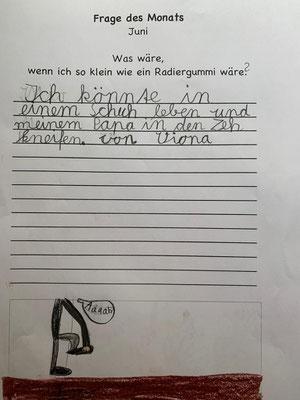 Frage des Monats
Juni
Was wäre,
wenn ich so klein wie ein Radiergummi wäre?
Ich könnte in
einem Schuh leben und
meinem Papa in den Zeh
kneifen. von Viona